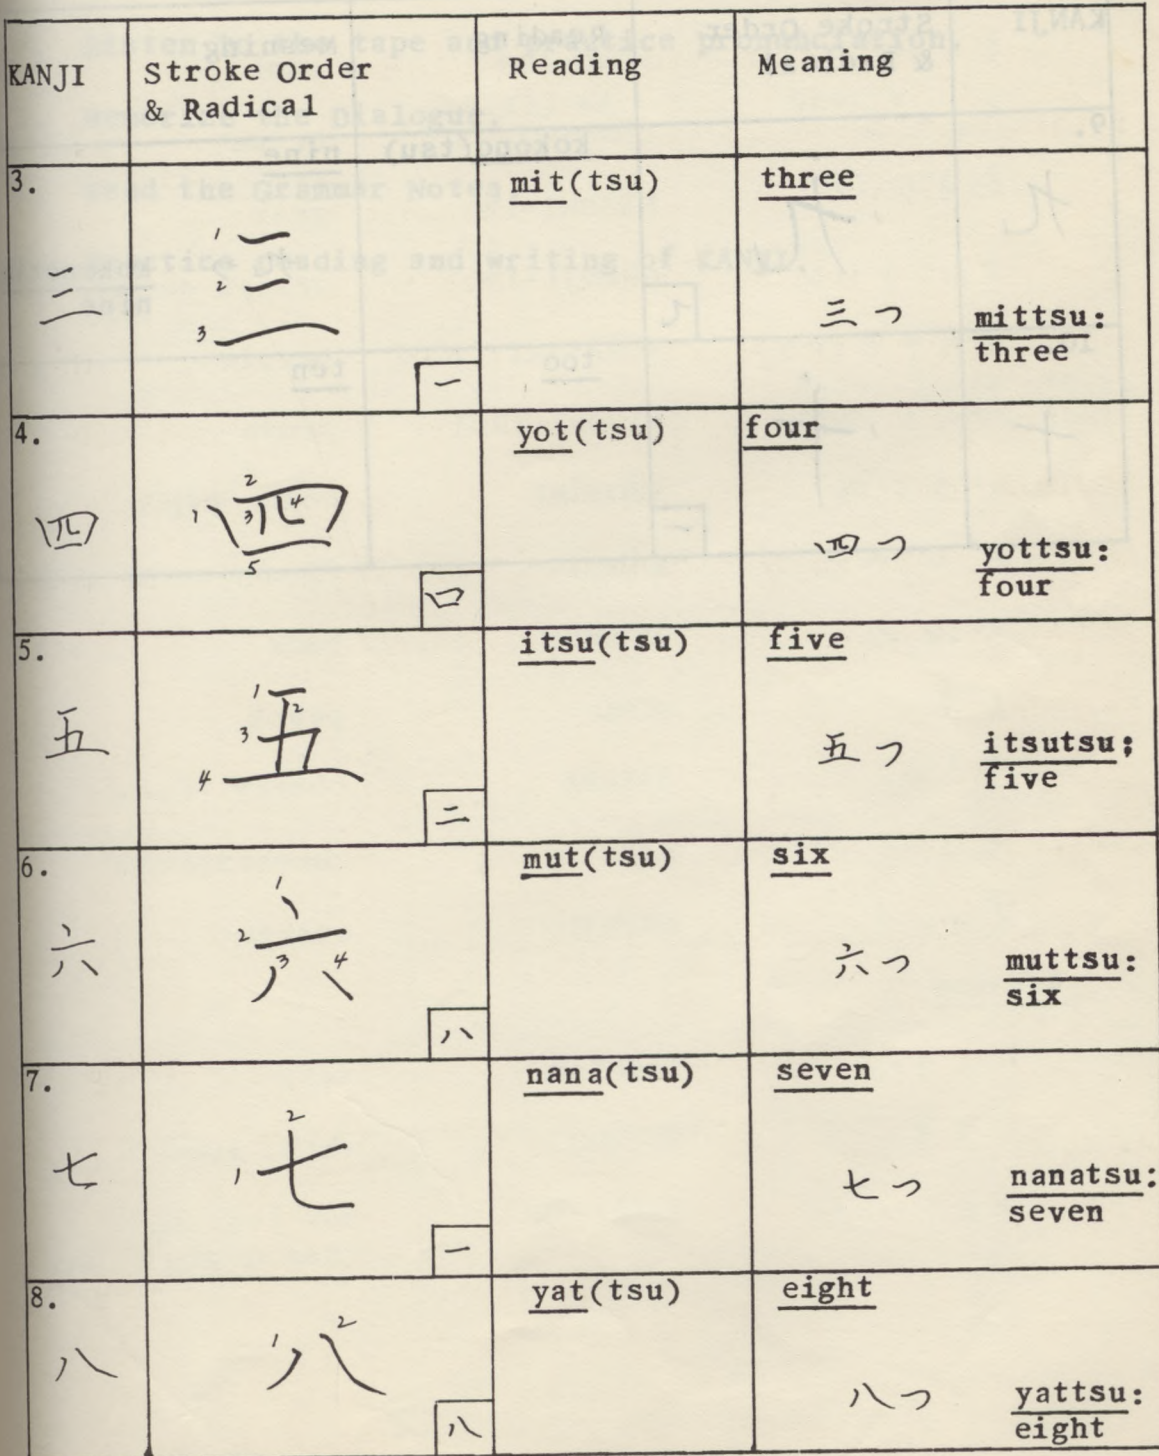 KANJI Stroke Order & Radical Reading Meaning
3.
三
1 2 3 三
一
mit(tsu)
three
三つ mittsu:
three
4.
四
1 2 3 4 5 四
囗
yot(tsu)
four
四つ yottsu:
four
5.
五
1 2 3 4 五
二
itsu(tsu)
five
五つ itsutsu;
five
6.
六
1 2 3 4 六
八
mut(tsu)
six
六つ muttsu:
six
7.
七
1 2 七
一
nana(tsu)
seven
七つ nanatsu:
seven
8.
八
1 2 八
八
yat(tsu)
eight
八つ yattsu:
eight